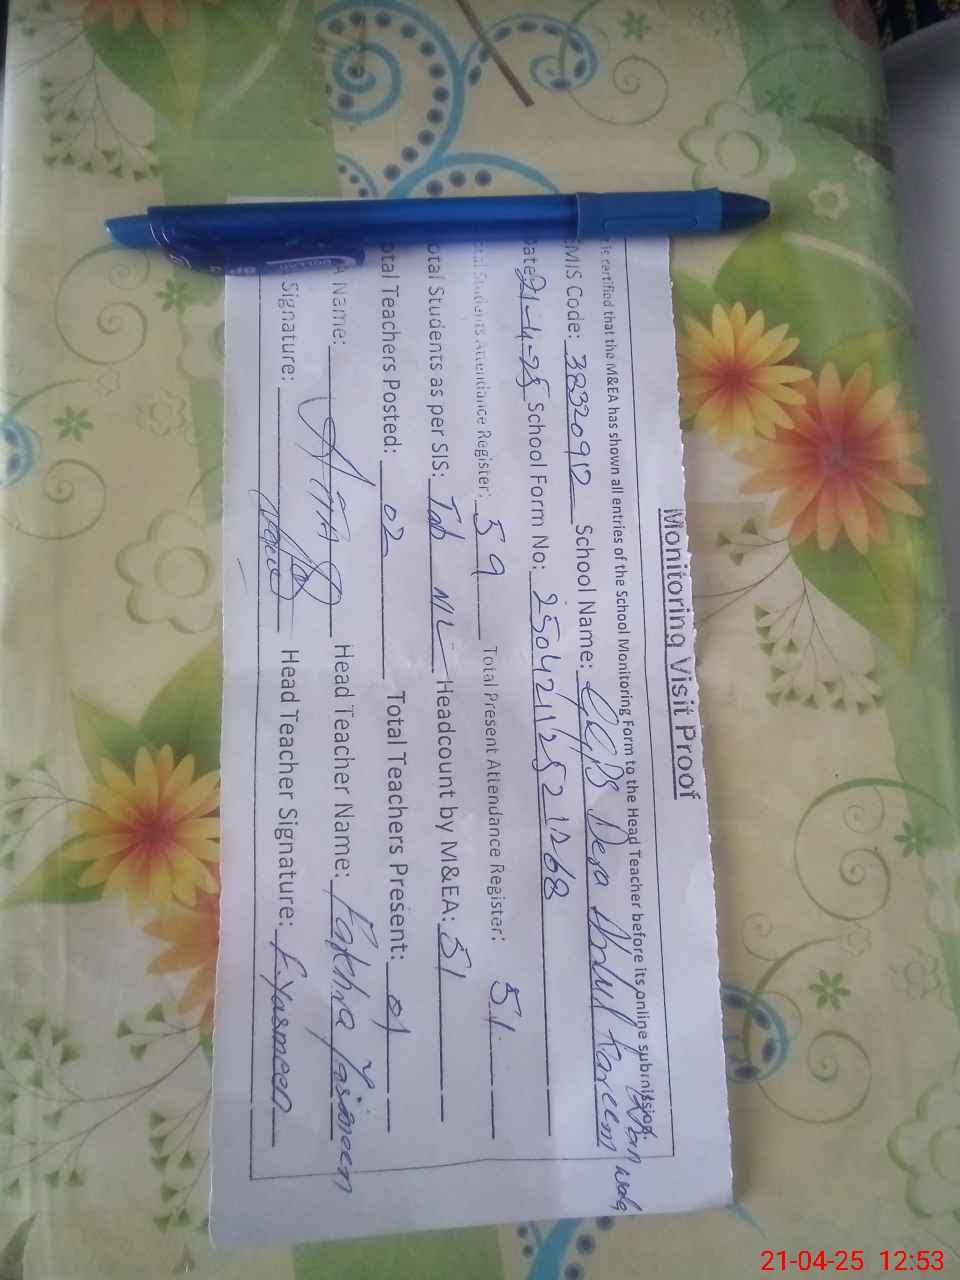 Monitoring Visit Proof
is certified that the M&EA has shown all entries of the School Monitoring Form to the Head Teacher before its online submission.
EMIS Code: 38320912 School Name: GGPS Dera Abdul Kareem
Date: 21-4-25 School Form No:
Students Attendance Register: 59 Total Present Attendance Register: 51
otal Students as per SIS: Tab Headcount by M&EA: 51
otal Teachers Posted: 02 Total Teachers Present: 01
A Name: Head Teacher Name: Fakhra Yasmeen
Signature: Head Teacher Signature: F.Yasmeen
DOLLAR
21-04-25 12:53